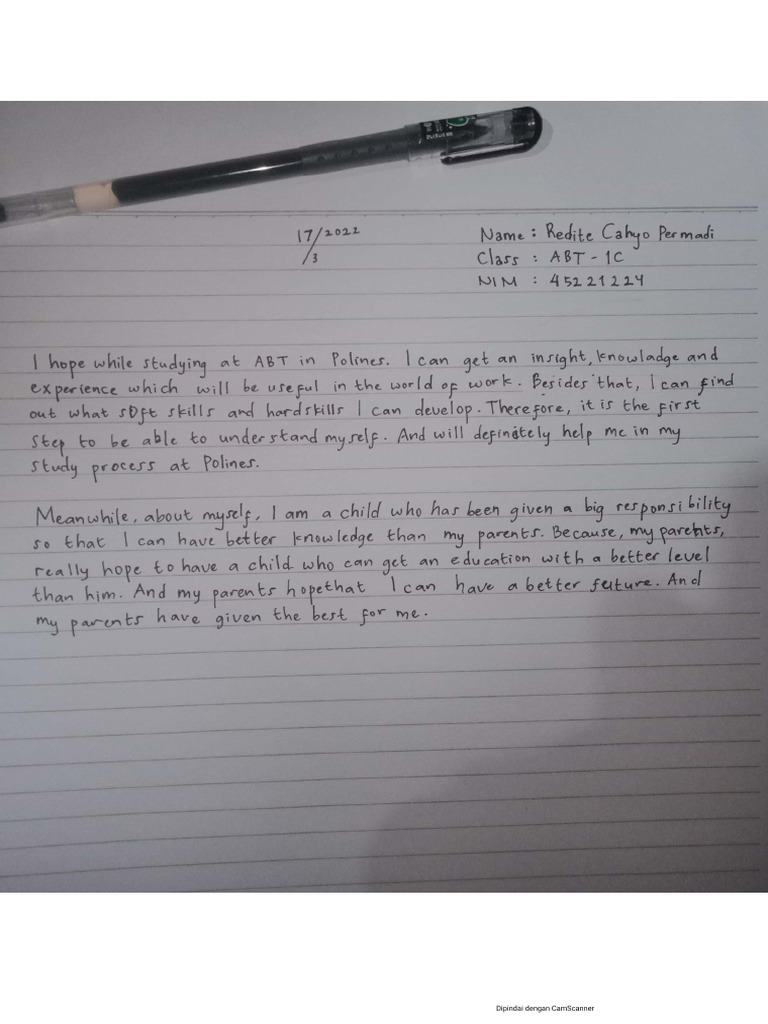 17/2022
/3
Name : Redite Cahyo Permadi
Class : ABT - 1C
NIM : 45221224
I hope while studying at ABT in Polines. I can get an insight, knowladge and
experience which will be useful in the world of work. Besides that, i can find
out what soft skills and hardskills I can develop. Therefore, it is the first
step to be able to understand myself. And will definately help me in my
study process at Polines.
Meanwhile, about myself, I am a child who has been given a big responsibility
so that I can have better knowledge than my parents. Because, my parents,
really hope to have a child who can get an education with a better level
than him. And my parents hopethat I can have a better future. And
my parents have given the best for me.
Dipindai dengan CamScanner